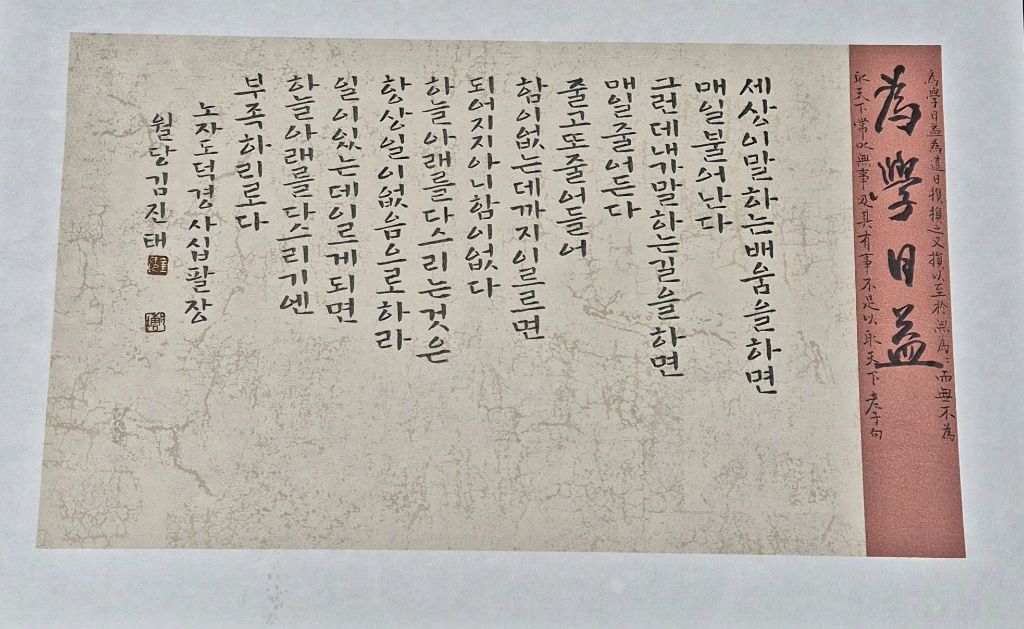 為學日益為道日損損之又損以至於無為〻而無不為
為學日益
取天下常以無事及其有事不足以取天下 老子句
세상이말하는배움을하면
매일불어난다
그런데내가말하는길을하면
매일줄어든다
줄고또줄어들어
함이없는데까지이르르면
되어지지아니함이없다
하늘아래를다스리는것은
항상일이없음으로하라
일이있는데이르게되면
하늘아래를다스리기엔
부족하리로다
노자도덕경사십팔장
월당김진태